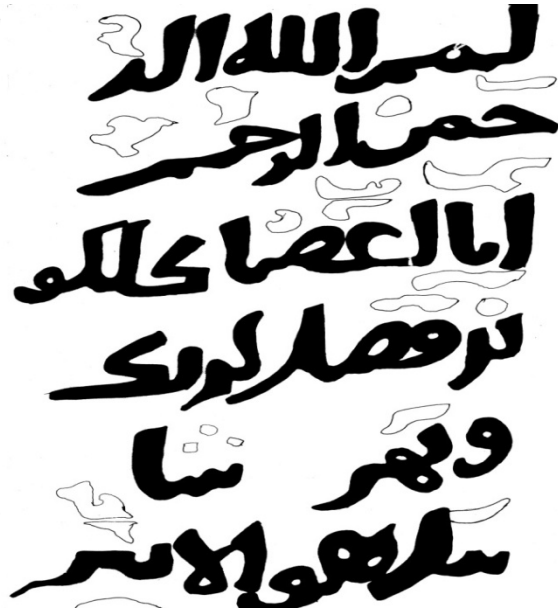 بسم الله الر
حمن الرحيم
انا اعطينا كلكو
ثر فصل لربك
ونحر شا
نيك هو الابتر